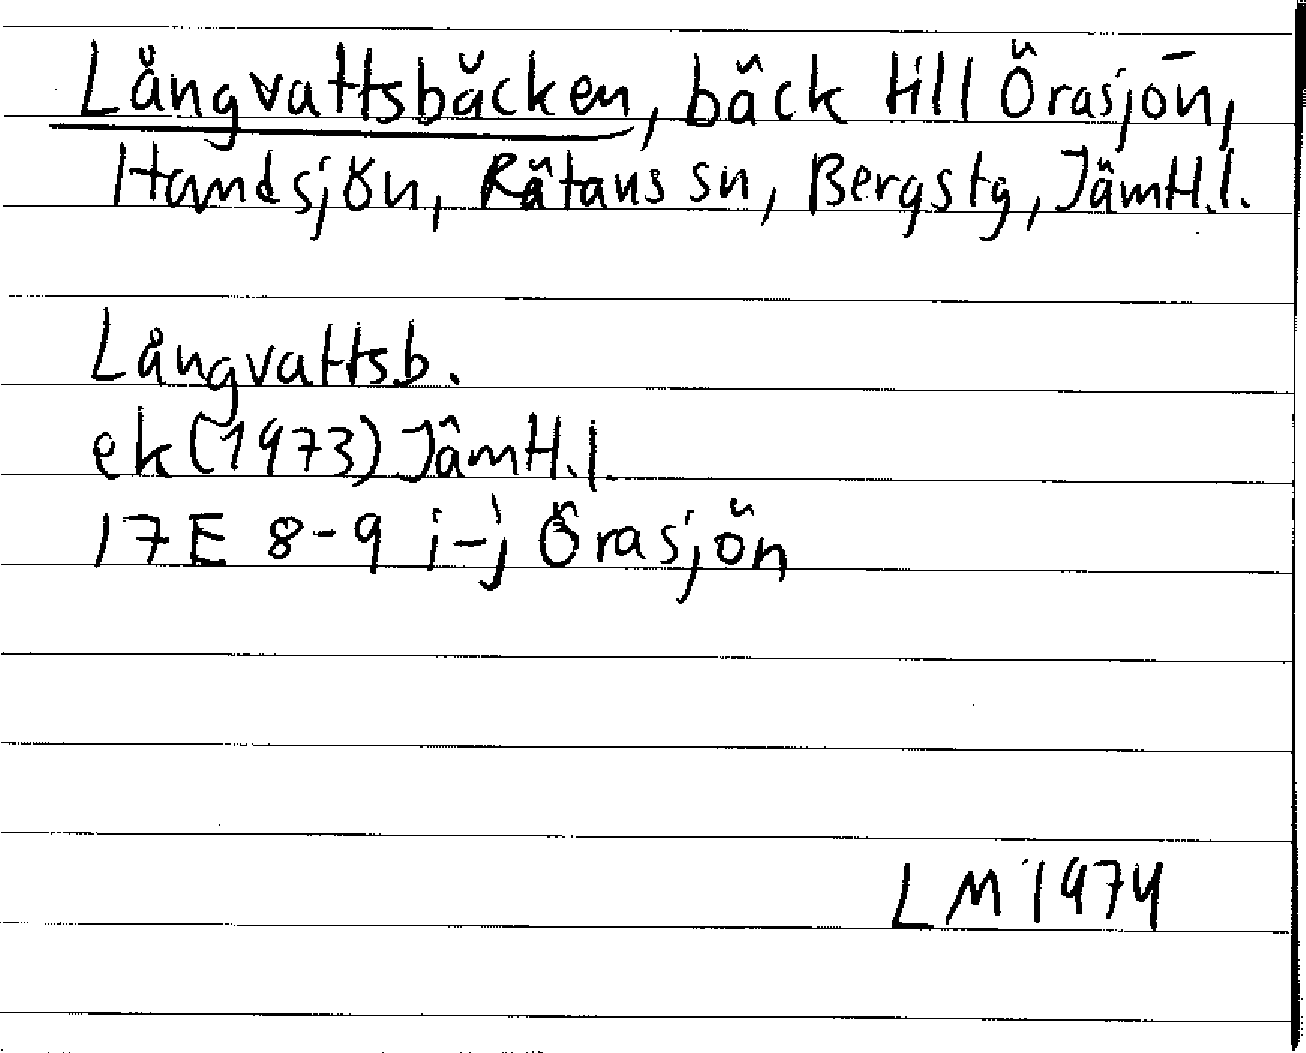 Långvattsbäcken, bäck till Örasjön,
Handsjön, Rätans sn, Bergs tg, Jämtl.l.
Långvattsb.
ek (1973) Jämtl.l.
17E 8-9 i-j Örasjön
LM 1974